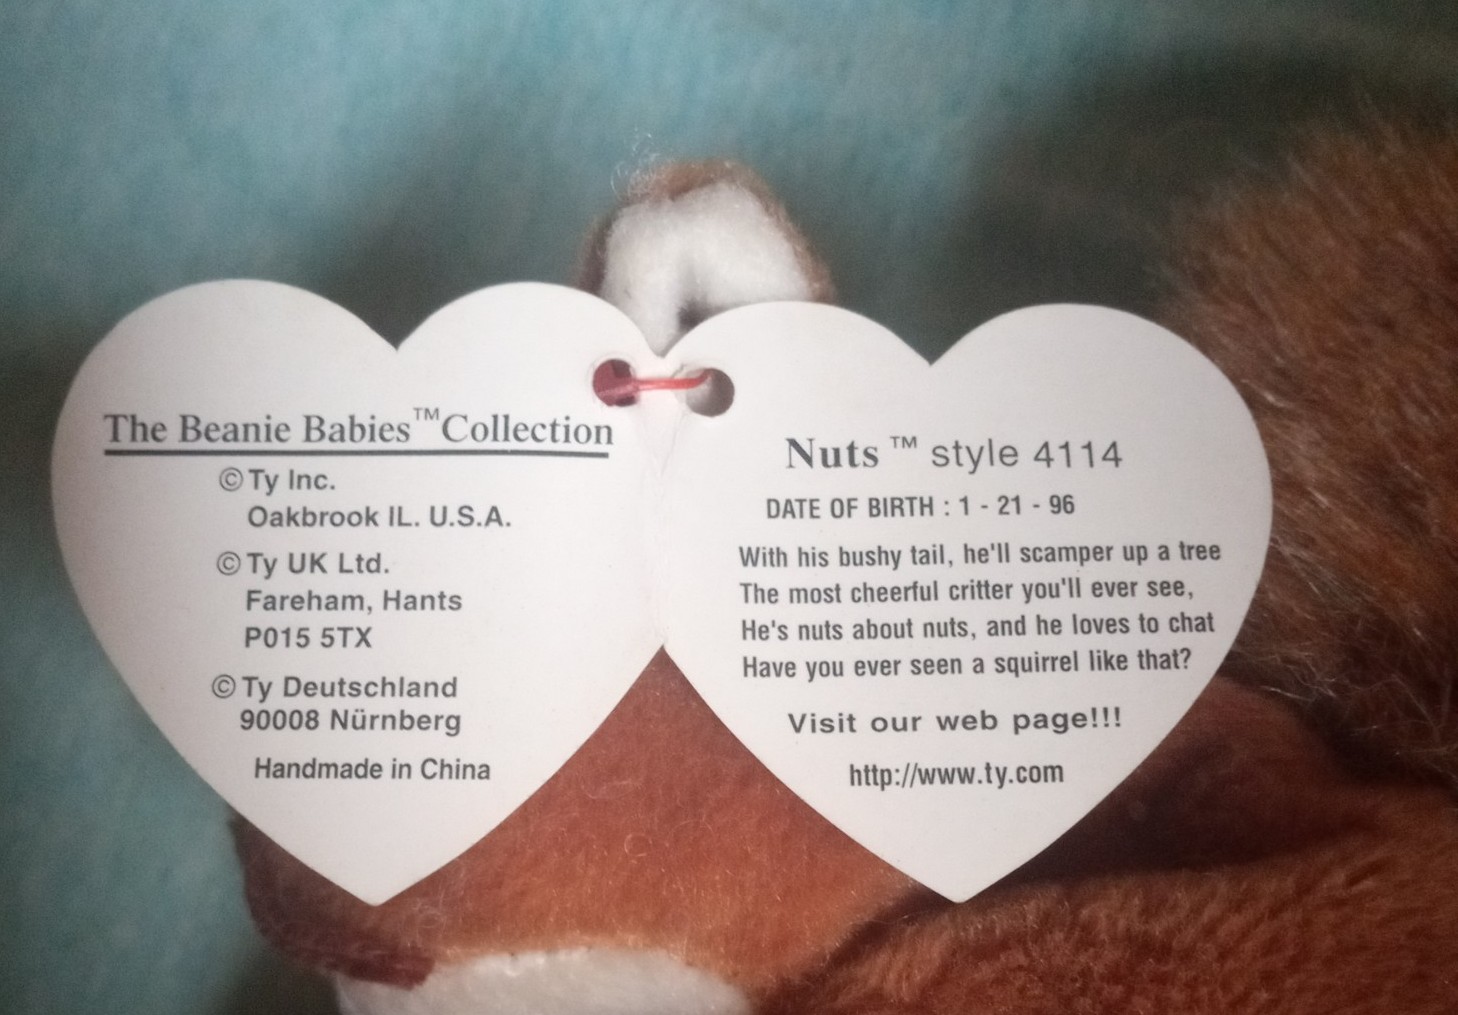 The Beanie Babies™ Collection
© Ty Inc.
Oakbrook IL. U.S.A.
© Ty UK Ltd.
Fareham, Hants
P015 5TX
© Ty Deutschland
90008 Nürnberg
Handmade in China
Nuts ™ style 4114
DATE OF BIRTH : 1 - 21 - 96
With his bushy tail, he'll scamper up a tree
The most cheerful critter you'll ever see,
He's nuts about nuts, and he loves to chat
Have you ever seen a squirrel like that?
Visit our web page!!!
http://www.ty.com